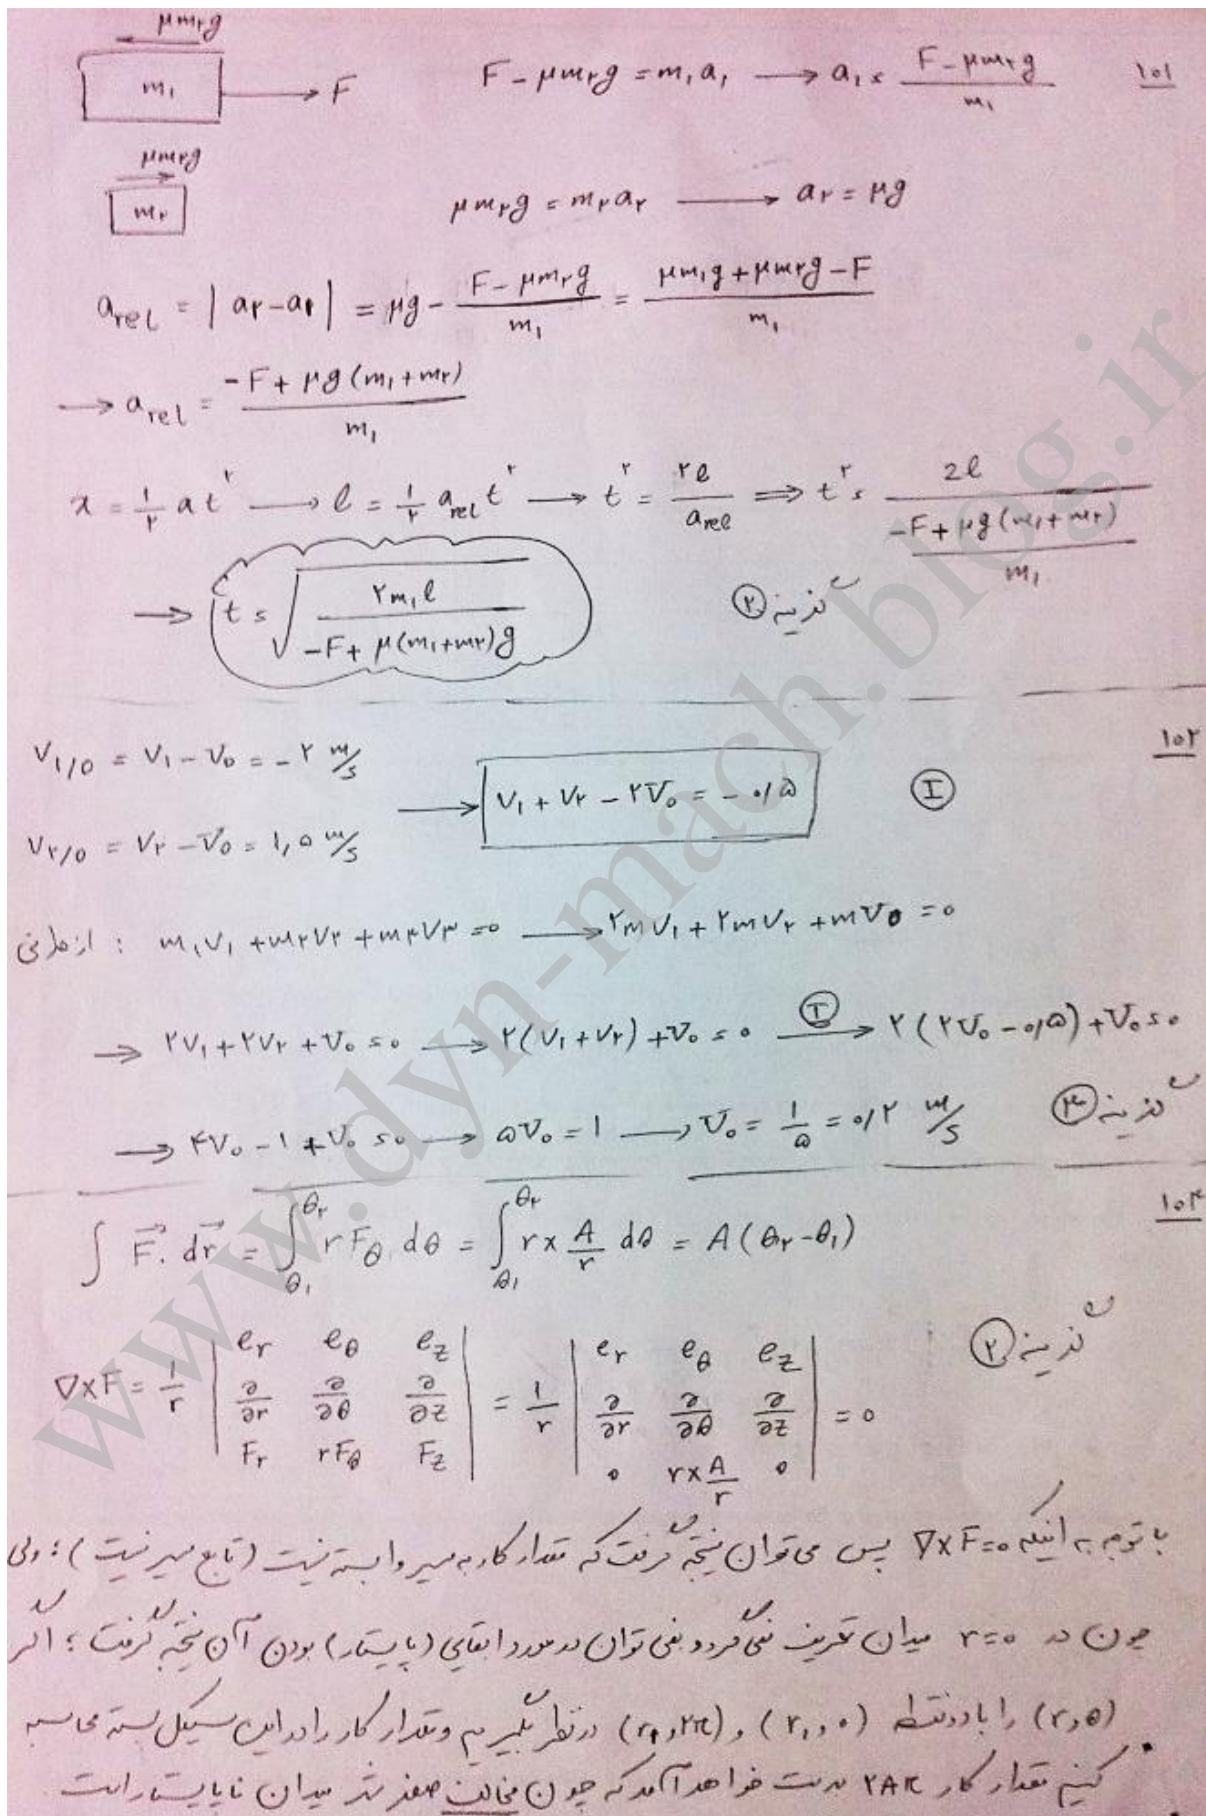 μm۲g
m۱ → F    F - μm۲g = m۱a۱ → a۱ = (F - μm۲g) / m۱    ۱۰۱
μm۲g
m۲    μm۲g = m۲a۲ → a۲ = μg
a_rel = |a۲ - a۱| = μg - (F - μm۲g) / m۱ = (μm۱g + μm۲g - F) / m۱
→ a_rel = (-F + μg(m۱ + m۲)) / m۱
x = ۱/۲ a t^۲ → l = ۱/۲ a_rel t^۲ → t^۲ = ۲l / a_rel ⇒ t^۲ = 2l / ((-F + μg(m۱ + m۲)) / m۱)
→ t = √(۲m۱l / (-F + μ(m۱ + m۲)g))    گزینه ۲
۱۰۲
V۱/0 = V۱ - V0 = -۲ m/s
→ V۱ + V۲ - ۲V0 = -۰/۵    I
V۲/0 = V۲ - V0 = ۱,۵ m/s
از طرفی : m۱V۱ + m۲V۲ + m۳V۳ = 0 → ۲mV۱ + ۲mV۲ + mV0 = 0
→ ۲V۱ + ۲V۲ + V0 = 0 → ۲(V۱ + V۲) + V0 = 0 →(I) ۲(۲V0 - ۰/۵) + V0 = 0
→ ۴V0 - ۱ + V0 = 0 → ۵V0 = ۱ → V0 = ۱/۵ = ۰/۲ m/s    گزینه ۳
۱۰۳
∫ F⃗. dr⃗ = ∫_θ۱^θ۲ r Fθ dθ = ∫_θ۱^θ۲ r × A/r dθ = A(θ۲ - θ۱)
گزینه ۲
∇×F = ۱/r | er eθ ez ; ∂/∂r ∂/∂θ ∂/∂z ; Fr rFθ Fz | = ۱/r | er eθ ez ; ∂/∂r ∂/∂θ ∂/∂z ; ۰ r×A/r ۰ | = 0
با توجه به اینکه ∇×F=0 پس می توان نتیجه گرفت که مقدار کار به مسیر وابسته نیست (تابع مسیر نیست) ؛ ولی
چون در r=0 میدان تعریف نمی گردد و نمی توان در مورد ابقایی (پایستار) بودن آن نتیجه گرفت ؛ اگر
(r,θ) را با دو نقطه (r۱,۰) و (r۱,۲π) در نظر بگیریم و مقدار کار را در این سیکل بسته محاسبه
کنیم مقدار کار ۲Aπ بدست خواهد آمد که چون مخالف صفر شد میدان ناپایستار است.
www.dyn-mach.blog.ir